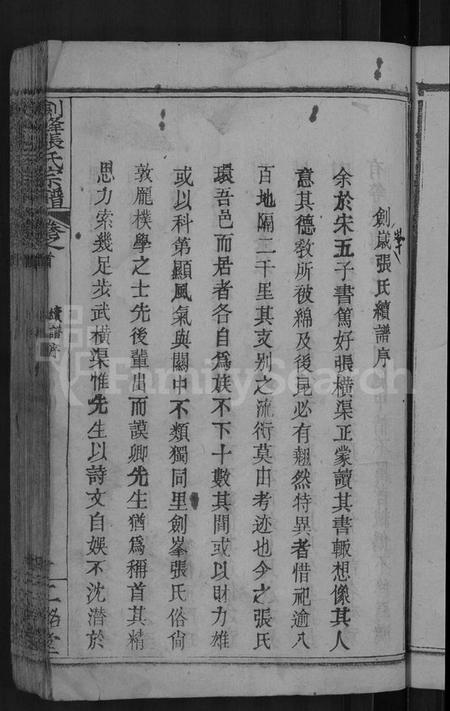 劍峯張氏續譜序
余於宋五子書篤好張橫渠正蒙讀其書輒想像其人
意其德教所被綿及後昆必有翹然特異者惜祀逾八
百地隔二千里其支別之流衍莫由考迹也今之張氏
環吾邑而居者各自為族不下十數其間或以財力雄
或以科第顯風氣與關中不類獨同里劍峯張氏俗尙
敦龐樸學之士先後輩出而謨卿先生猶為稱首其精
思力索幾足步武橫渠惟先生以詩文自娛不沈潛於
劍峯張氏宗譜 卷之首 續譜序 一 二銘堂
FamilySearch